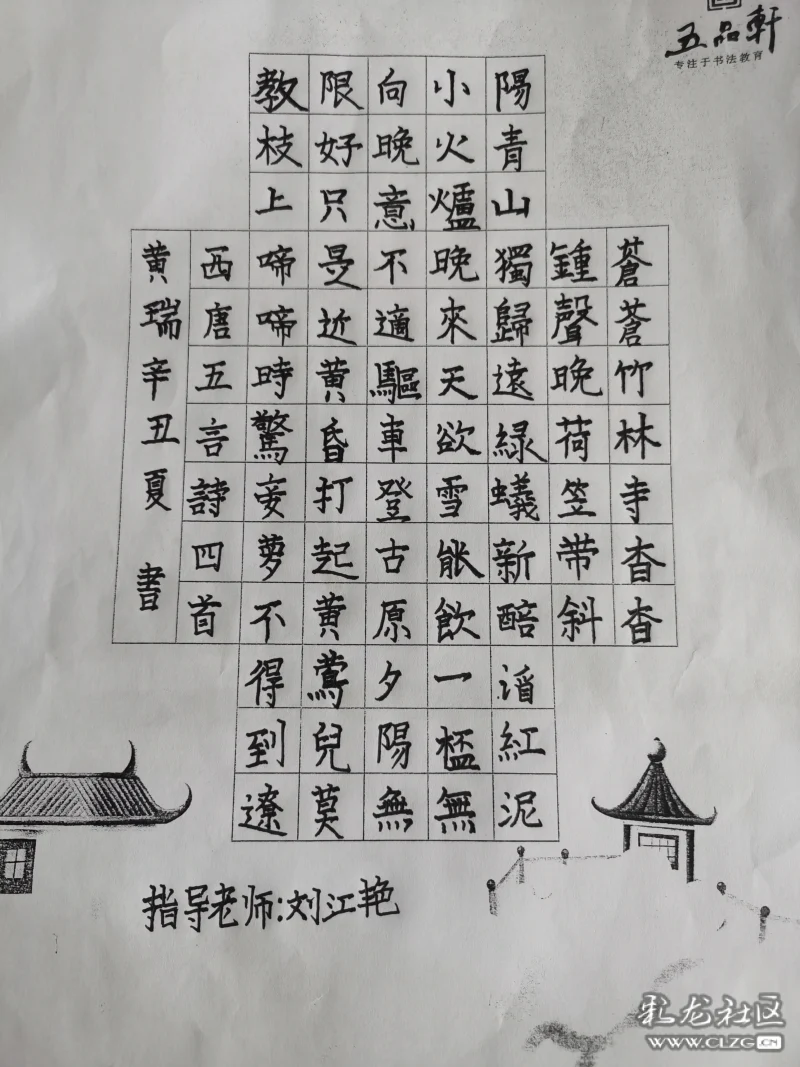 五品軒
专注于书法教育
蒼蒼竹林寺杳杳
鍾聲晚荷笠带斜
陽青山獨歸遠緑蟻新醅酒紅泥
小火爐晚來天欲雪能飲一杯無
向晚意不適驅車登古原夕陽無
限好只是近黄昏打起黄鶯兒莫
教枝上啼啼時驚妾夢不得到遼
西唐五言詩四首
黄瑞辛丑夏 書
指导老师:刘江艳
彩龙社区
www.CLZG.CN